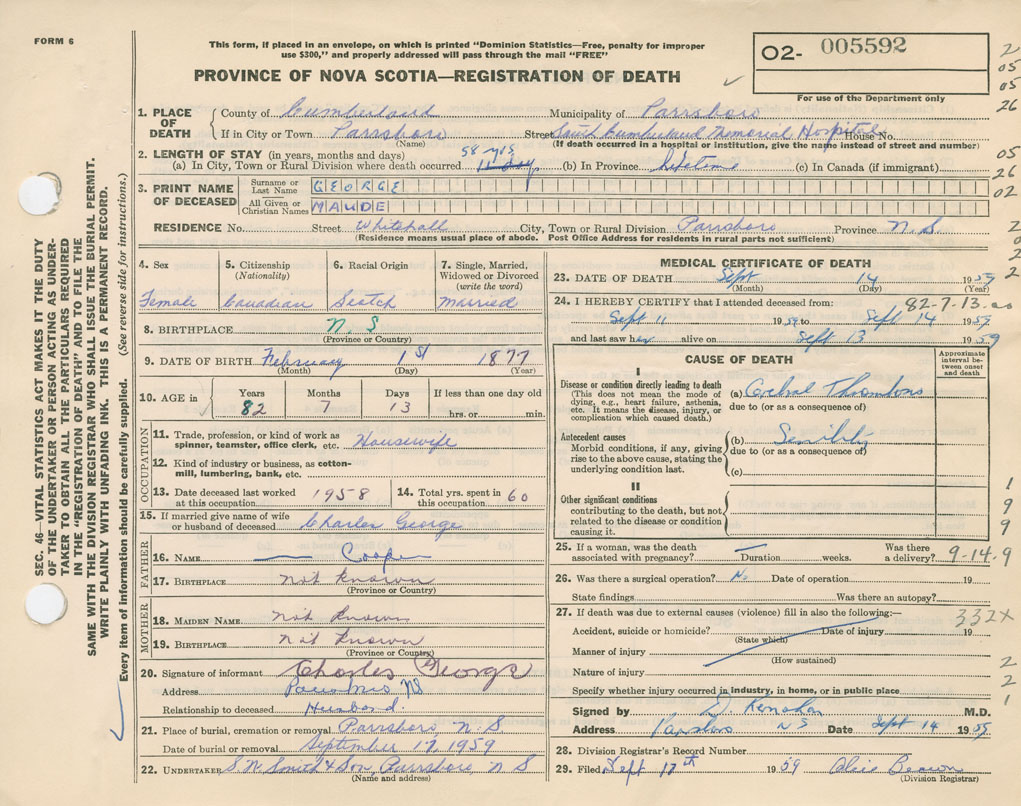 FORM 6
This form, if placed in an envelope, on which is printed "Dominion Statistics—Free, penalty for improper
use $300," and properly addressed will pass through the mail "FREE"
PROVINCE OF NOVA SCOTIA—REGISTRATION OF DEATH
O2- 005592
For use of the Department only
2
05
05
26
05
26
02
2
0
2
2
1. PLACE OF DEATH
County of Cumberland Municipality of Parrsboro
If in City or Town Parrsboro Street South Cumberland Memorial Hospital House No.
(Name) (If death occurred in a hospital or institution, give the name instead of street and number)
2. LENGTH OF STAY (in years, months and days) 58 yrs
(a) In City, Town or Rural Division where death occurred (b) In Province Lifetime (c) In Canada (if immigrant)
3. PRINT NAME OF DECEASED
Surname or Last Name GEORGE
All Given or Christian Names MAUDE
RESIDENCE No. Street Whitehall City, Town or Rural Division Parrsboro Province N.S.
(Residence means usual place of abode. Post Office Address for residents in rural parts not sufficient)
4. Sex Female
5. Citizenship (Nationality) Canadian
6. Racial Origin Scotch
7. Single, Married, Widowed or Divorced (write the word) Married
8. BIRTHPLACE N.S
(Province or Country)
9. DATE OF BIRTH February 1st 1877
(Month) (Day) (Year)
10. AGE in Years 82 Months 7 Days 13 If less than one day old hrs. or min.
OCCUPATION
11. Trade, profession, or kind of work as spinner, teamster, office clerk, etc. Housewife
12. Kind of industry or business, as cotton-mill, lumbering, bank, etc.
13. Date deceased last worked at this occupation. 1958
14. Total yrs. spent in this occupation. 60
15. If married give name of wife or husband of deceased Charles George
FATHER
16. NAME Cooper
17. BIRTHPLACE not known
(Province or Country)
MOTHER
18. MAIDEN NAME not known
19. BIRTHPLACE not known
(Province or Country)
20. Signature of informant Charles George
Address Parrsboro NS
Relationship to deceased Husband.
21. Place of burial, cremation or removal Parrsboro, N.S
Date of burial or removal September 17, 1959
22. UNDERTAKER S.N. Smith & Son, Parrsboro, N S
(Name and address)
MEDICAL CERTIFICATE OF DEATH
23. DATE OF DEATH Sept 14 1959
(Month) (Day) (Year)
24. I HEREBY CERTIFY that I attended deceased from: 82-7-13
Sept 11 1959 to Sept 14 1959
and last saw her alive on Sept 13 1959
CAUSE OF DEATH
Approximate interval between onset and death
I
Disease or condition directly leading to death
(This does not mean the mode of dying, e.g., heart failure, asthenia, etc. It means the disease, injury, or complication which caused death.)
(a) Cerebral Thrombosis
due to (or as a consequence of)
Antecedent causes
Morbid conditions, if any, giving rise to the above cause, stating the underlying condition last.
(b) Senility
due to (or as a consequence of)
(c)
II
Other significant conditions
contributing to the death, but not related to the disease or condition causing it.
1
9
9
25. If a woman, was the death associated with pregnancy? — Duration weeks. Was there a delivery? 9-14.9
26. Was there a surgical operation? No Date of operation 19
State findings Was there an autopsy?
27. If death was due to external causes (violence) fill in also the following:— 332X
Accident, suicide or homicide? Date of injury 19
(State which)
Manner of injury
(How sustained)
Nature of injury
Specify whether injury occurred in industry, in home, or in public place
2
2
1
Signed by M.D.
Address Parrsboro NS Date Sept 14 1959
28. Division Registrar's Record Number
29. Filed Sept 17th 1959
(Division Registrar)
SEC. 46—VITAL STATISTICS ACT MAKES IT THE DUTY
OF THE UNDERTAKER OR PERSON ACTING AS UNDER-
TAKER TO OBTAIN ALL THE PARTICULARS REQUIRED
IN THE "REGISTRATION OF DEATH" AND TO FILE THE
SAME WITH THE DIVISION REGISTRAR WHO SHALL ISSUE THE BURIAL PERMIT.
WRITE PLAINLY WITH UNFADING INK. THIS IS A PERMANENT RECORD.
Every item of information should be carefully supplied. (See reverse side for instructions.)